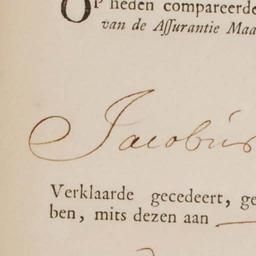 OP heden compareerde
van de Assurantie Maa
Jacobus
Verklaarde gecedeert, ge
ben, mits dezen aan